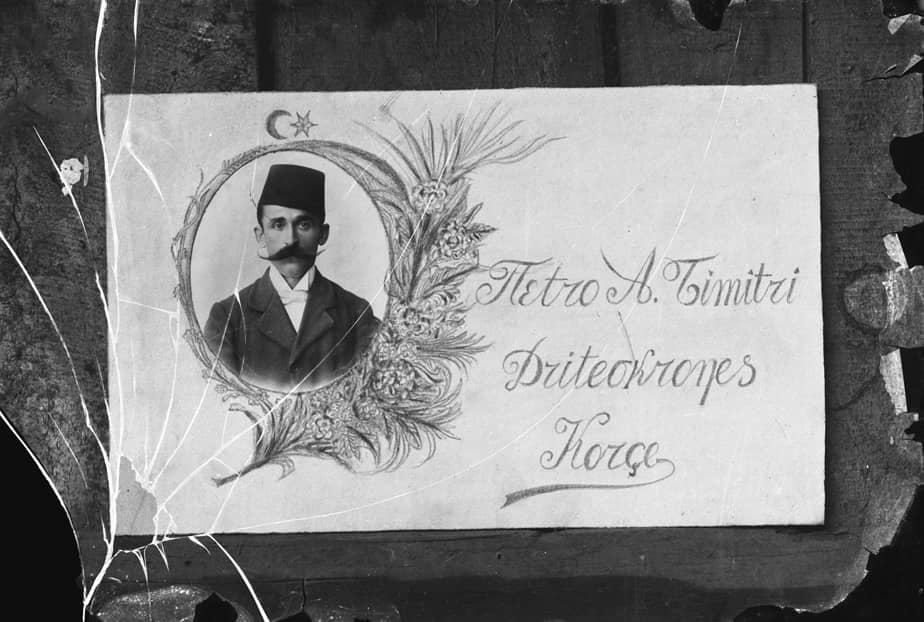 Πεtro A. Timitri
Driteσkroηes
Korçe